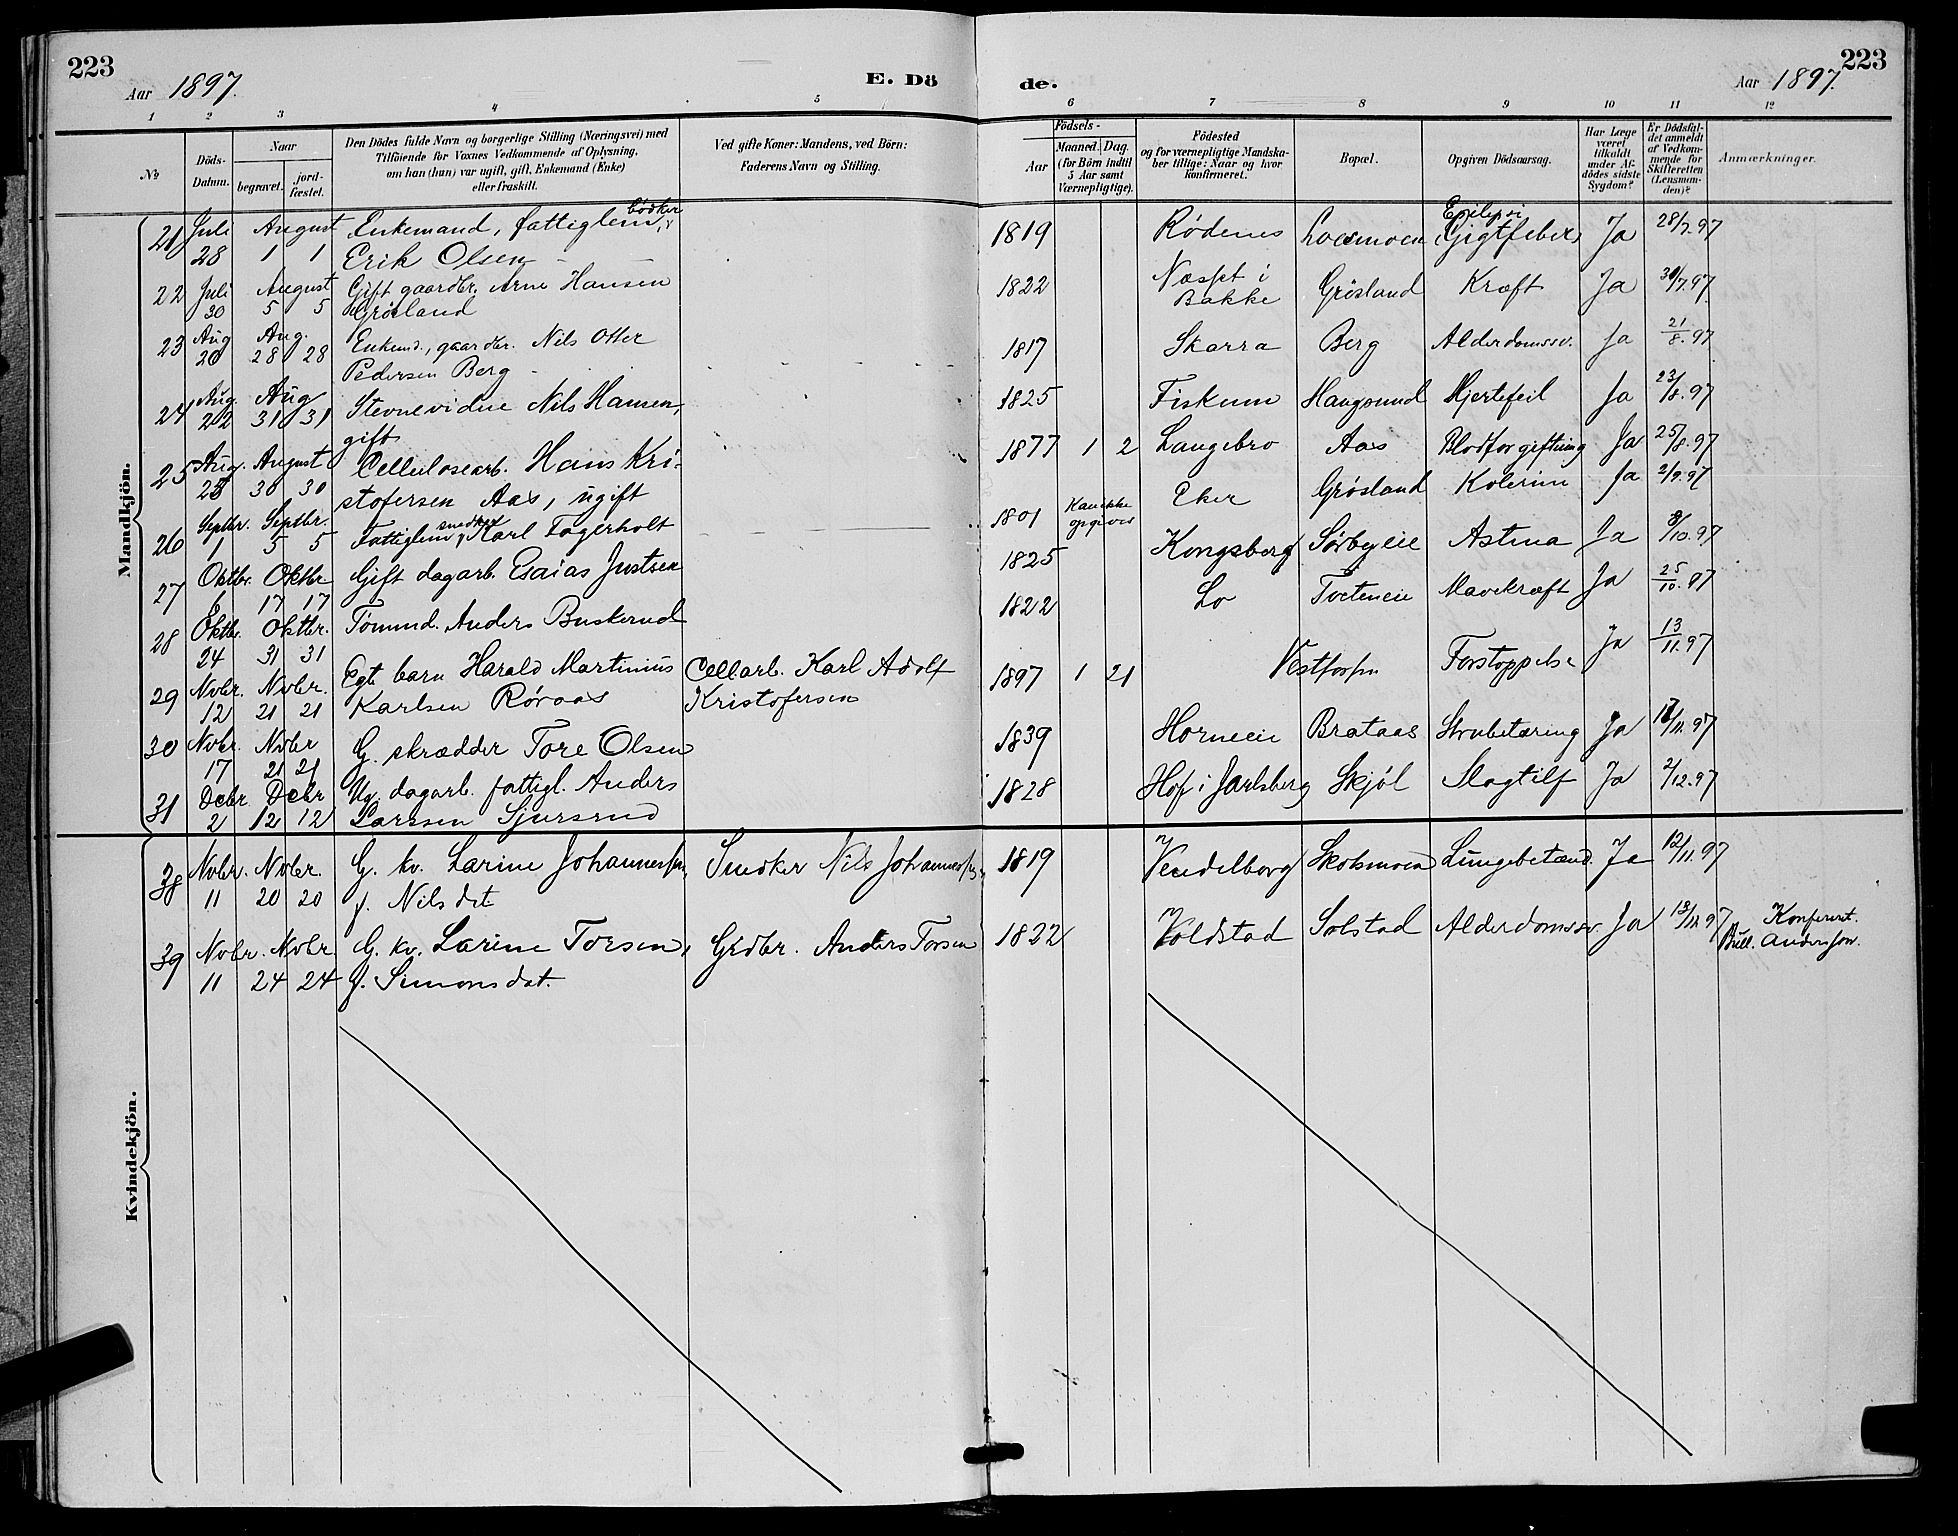 223
Aar 1897.
E. Dö
de.
Aar 1897.
223
1 2 3 4 5 6 7 8 9 10 11 12
No
Döds-Datum.
Naar
begravet.
jord-fæstet.
Den Dödes fulde Navn og borgerlige Stilling (Næringsvei) med
Tilföiende for Voxnes Vedkommende af Oplysning,
om han (hun) var ugift, gift, Enkemand (Enke)
eller fraskilt.
Ved gifte Koner: Mandens, ved Börn:
Faderens Navn og Stilling.
Födsels-
Aar
Maaned. Dag.
(for Börn indtil
5 Aar samt
Værnepligtige).
Födested
og for værnepligtige Mandska-
ber tillige: Naar og hvor
konfirmeret.
Bopæl.
Opgiven Dödsaarsag.
Har Læge
været
tilkaldt
under Af-
dödes sidste
Sygdom?
Er Dödsfal-
det anmeldt
af Vedkom-
mende for
Skifteretten
(Lensman-
den)?
Anmærkninger.
Mandkjön.
21 Juli 28 August 1 1 Enkemand, fattiglem, bödker
Erik Olsen 1819 Rödenes Loesmoen Epilepsi (Gigtfeber) Ja 28/7.97
22 Juli 30 August 5 5 Gift gaardbr. Arne Hansen
Grösland 1822 Næsset i Bakke Grösland Kræft Ja 30/7.97
23 Aug 20 Aug. 28 28 Enkemd., gaardbr. Nils Otter
Pedersen Berg 1817 Skarra Berg Alderdomssv. Ja 21/8.97
24 Aug. 22 Aug 31 31 Stevnevidne Nils Hansen,
gift 1825 Fiskum Haugsund Hjertefeil Ja 23/8.97
25 Aug. 23 August 30 30 Cellulosearb. Hans Kri-
stofersen Aas, ugift 1877 1 2 Langebro Aas Blodforgiftning Ja 25/8.97
26 Septbr. 1 Septbr. 5 5 Fattiglem, snedker Karl Fagerholt 1801 Kan ikke opgives Eker Grösland Kolerine Ja 2/9.97
27 Oktbr. Oktbr 17 17 Gift dagarb. Esaias Justsen 1825 Kongsberg Sörbyeie Astma Ja 8/10.97
28 Oktbr. 24 Oktbr. 31 31 Tömmd. Anders Buskerud 1822 Lo Tveteneie Mavekræft Ja 25/10.97
29 Novbr. 12 Novbr. 21 21 Egte barn Harald Martinius
Karlsen Röraas Cell.arb. Karl Adolf
Kristofersen 1897 1 21 Vestfossen Forstoppelse Ja 13/11.97
30 Novbr. 17 Novbr 21 21 G. skrædder Tore Olsen 1839 Horneeie Brataas Strubetæring Ja 17/11.97
31 Decbr. 2 Decbr 12 12 Ug. dagarb. fattigl. Anders
Larssen Sjursrud 1828 Hof i Jarlsberg Skjöl Slagtilf Ja 2/12.97
Kvindekjön.
38 Novbr. 11 Novbr. 20 20 G. kv. Larine Johannessen,
f. Nilsdat Snedker Nils Johannessen 1819 Vendelborg Skotsmoen Lungebetænd. Ja 12/11.97
39 Novbr. 11 Novbr. 24 24 G. kv. Larine Torsen,
f. Simonsdat. Grdbr. Anders Torsen 1822 Voldstad Solstad Alderdomssv. Ja 13/11.97 Konfereret.
Bull. Anderssen.